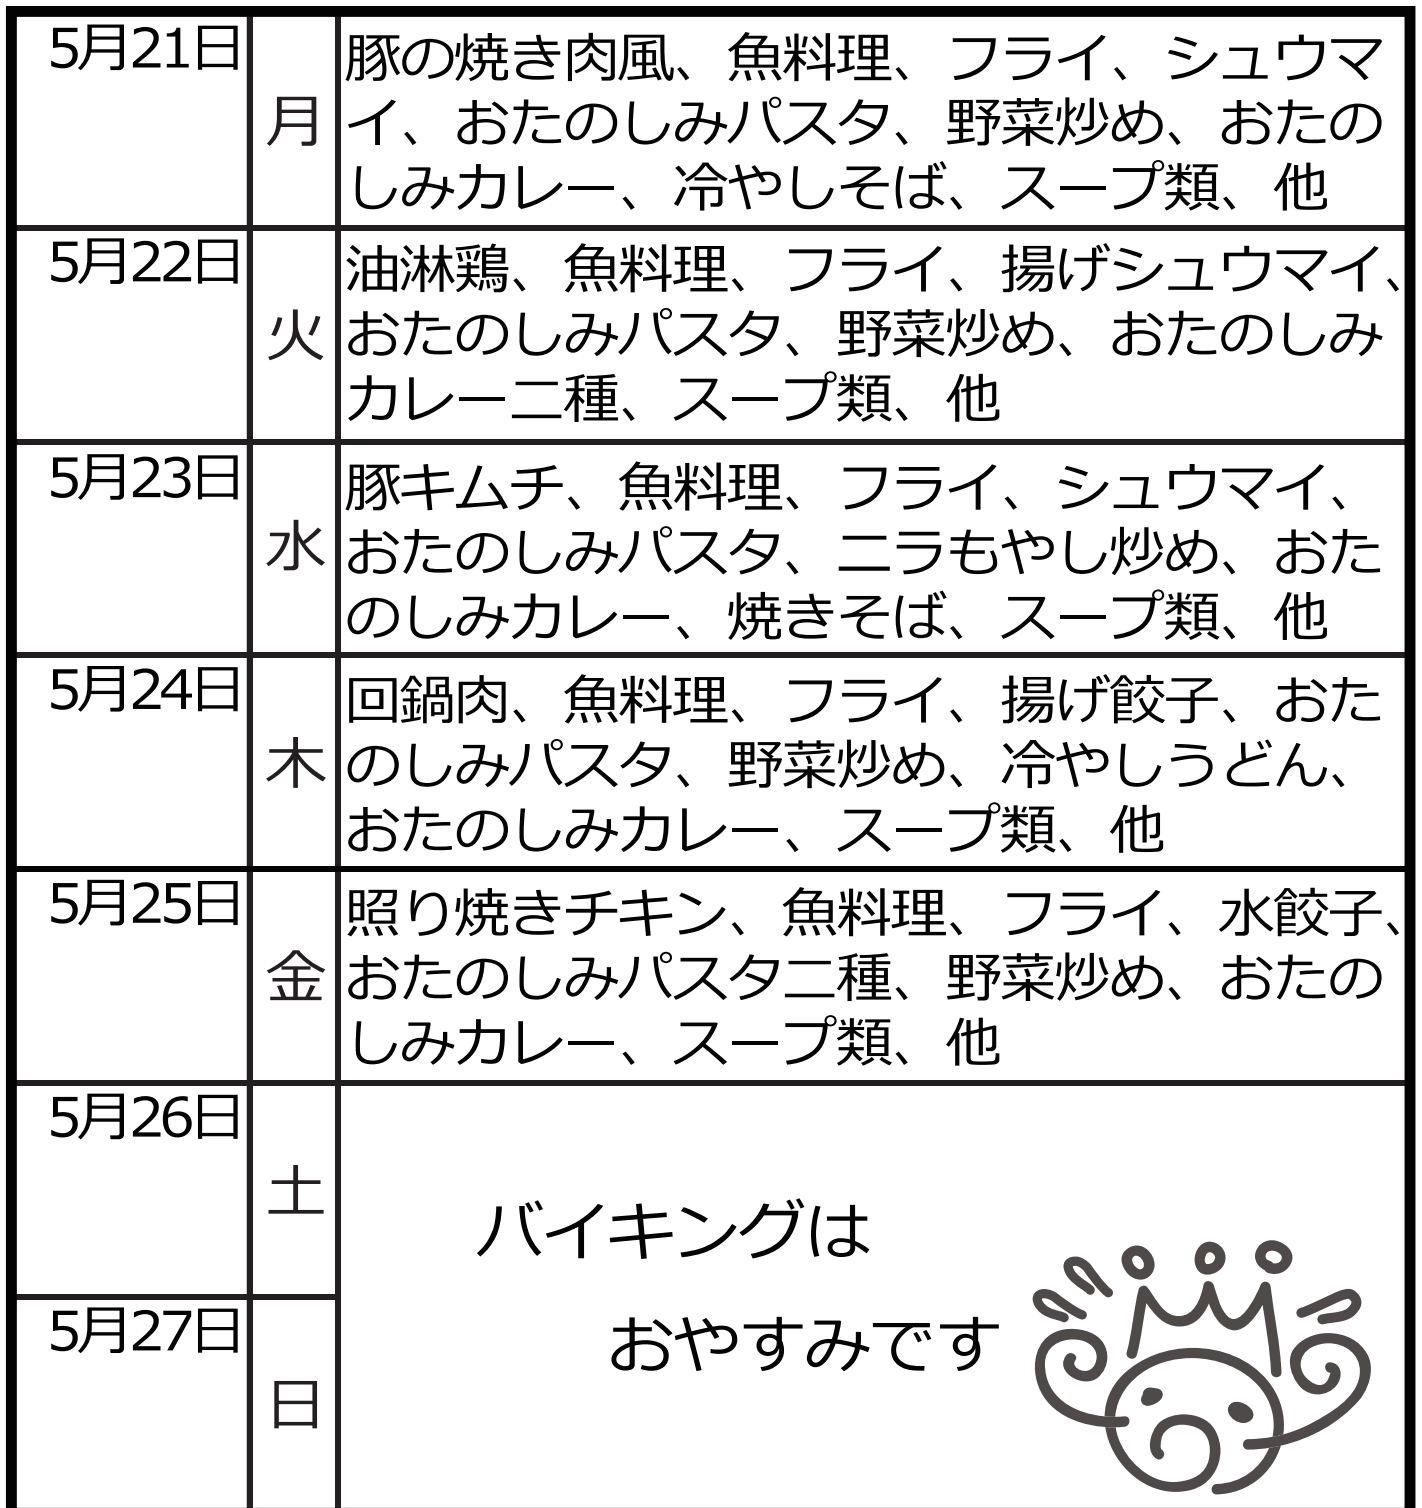 5月21日
月
豚の焼き肉風、魚料理、フライ、シュウマ
イ、おたのしみパスタ、野菜炒め、おたの
しみカレー、冷やしそば、スープ類、他
5月22日
火
油淋鶏、魚料理、フライ、揚げシュウマイ、
おたのしみパスタ、野菜炒め、おたのしみ
カレー二種、スープ類、他
5月23日
水
豚キムチ、魚料理、フライ、シュウマイ、
おたのしみパスタ、ニラもやし炒め、おた
のしみカレー、焼きそば、スープ類、他
5月24日
木
回鍋肉、魚料理、フライ、揚げ餃子、おた
のしみパスタ、野菜炒め、冷やしうどん、
おたのしみカレー、スープ類、他
5月25日
金
照り焼きチキン、魚料理、フライ、水餃子、
おたのしみパスタ二種、野菜炒め、おたの
しみカレー、スープ類、他
5月26日
土
バイキングは
おやすみです
5月27日
日